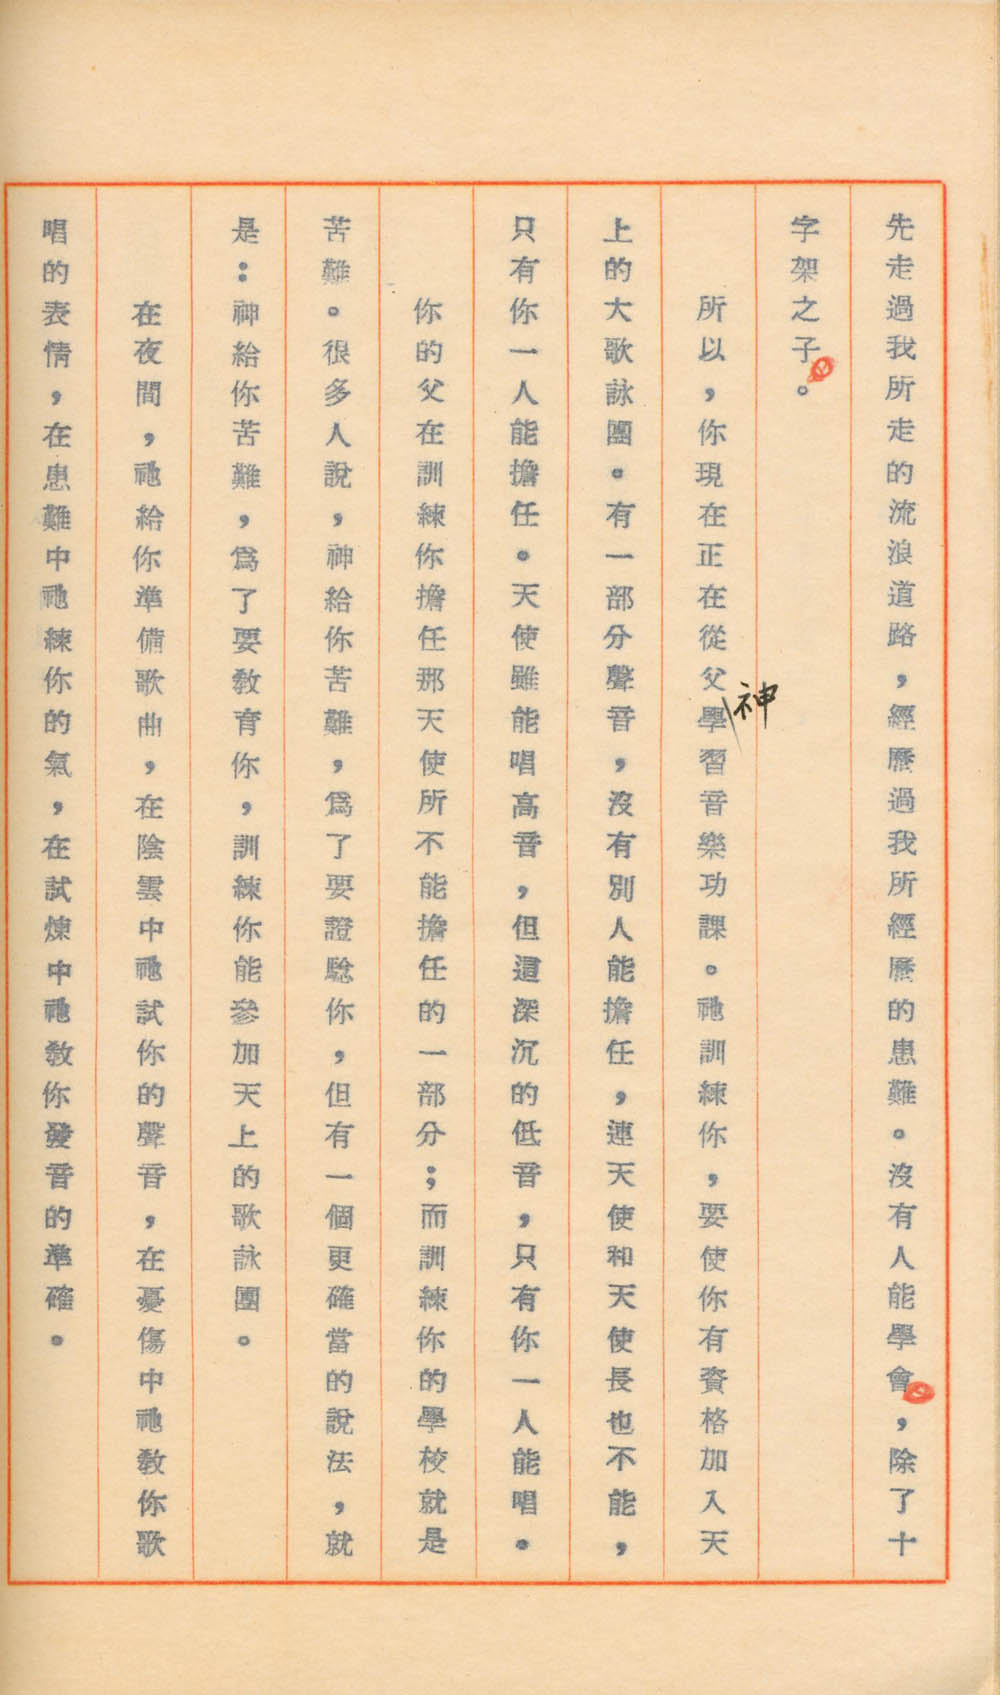 先走過我所走的流浪道路，經歷過我所經歷的患難。沒有人能學會，除了十
字架之子。
所以，你現在正在從父神學習音樂功課。祂訓練你，要使你有資格加入天
上的大歌詠團。有一部分聲音，沒有別人能擔任，連天使和天使長也不能，
只有你一人能擔任。天使雖能唱高音，但這深沉的低音，只有你一人能唱。
你的父在訓練你擔任那天使所不能擔任的一部分；而訓練你的學校就是
苦難。很多人說，神給你苦難，為了要證驗你，但有一個更確當的說法，就
是：神給你苦難，為了要教育你，訓練你能參加天上的歌詠團。
在夜間，祂給你準備歌曲，在陰雲中祂試你的聲音，在憂傷中祂教你歌
唱的表情，在患難中祂練你的氣，在試煉中祂教你發音的準確。